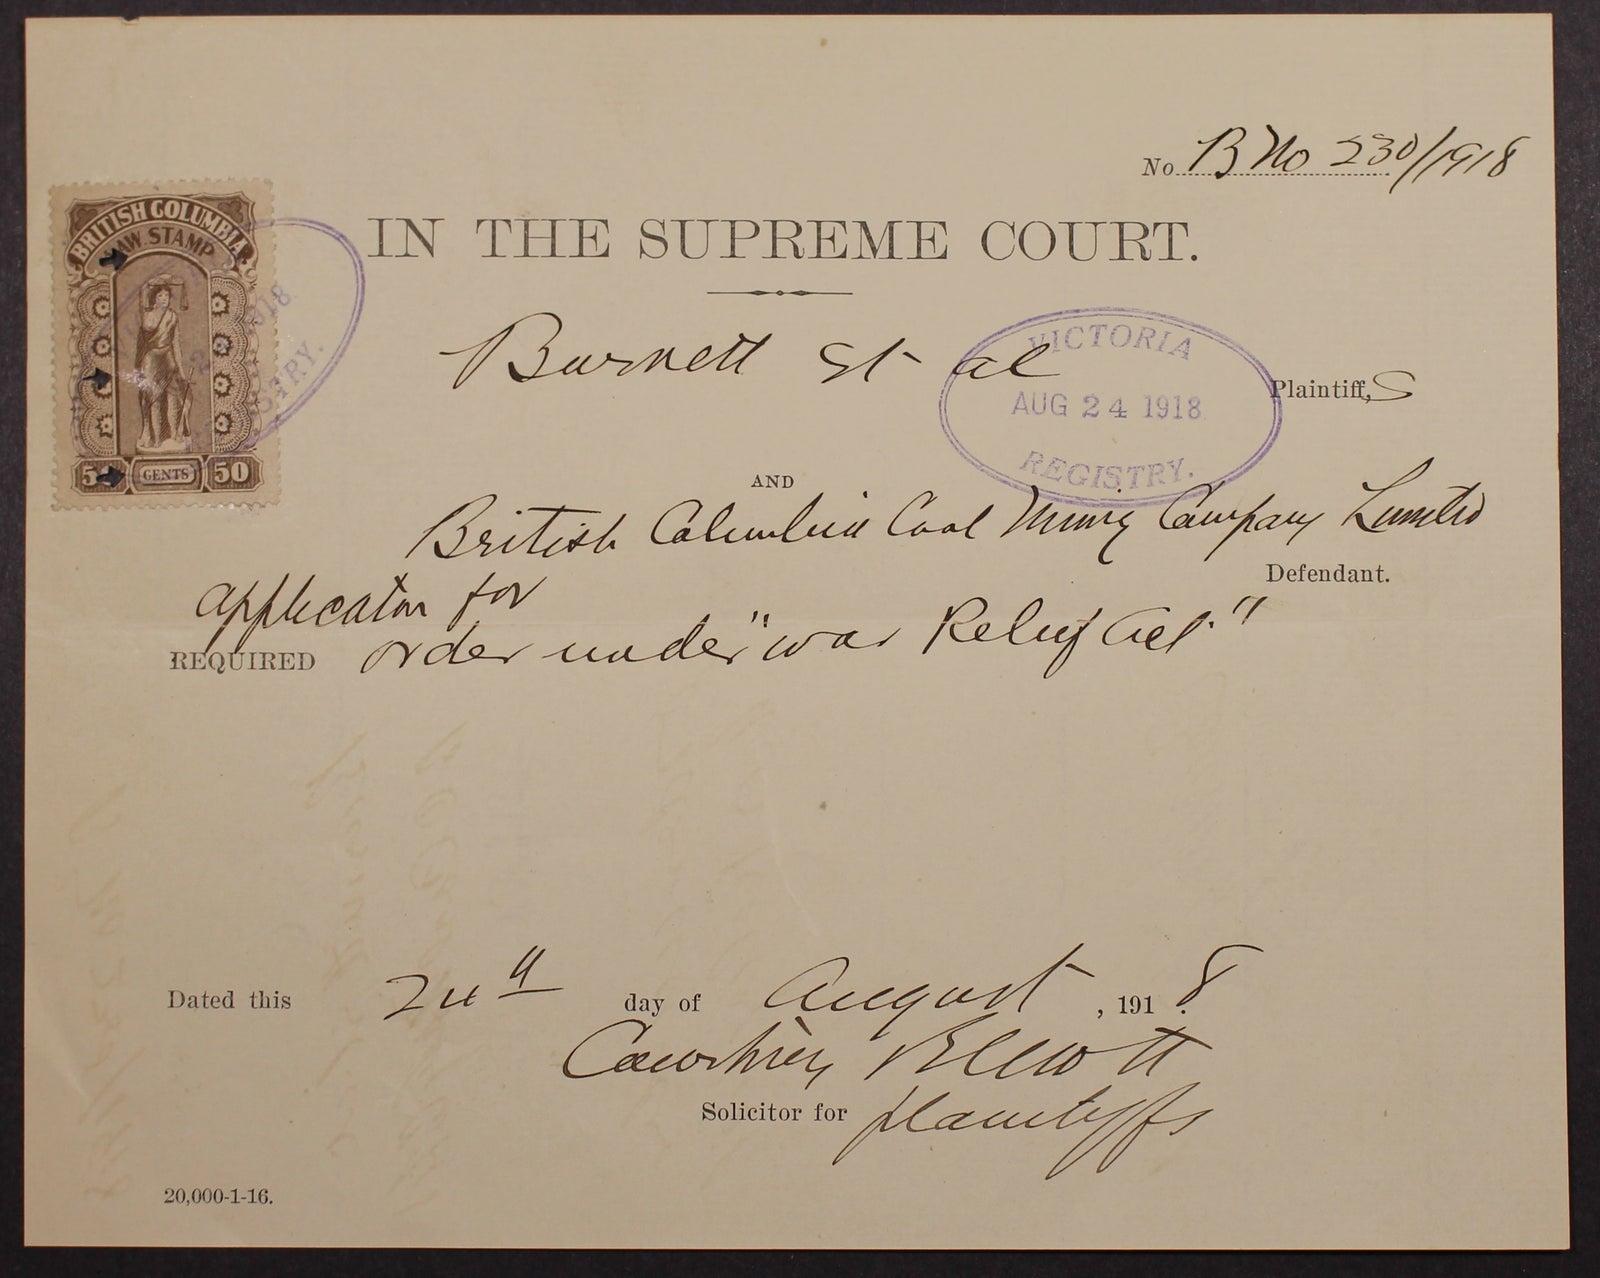 No B No 230/1918
BRITISH COLUMBIA
LAW STAMP
50 CENTS 50
IN THE SUPREME COURT.
Burnett et al
Plaintiff,s
VICTORIA
AUG 24 1918
REGISTRY.
AND
British Columbia Coal Mining Company Limited
Defendant.
application for
REQUIRED order under "war Relief Act."
Dated this 24th day of August, 1918.
Elliott
Solicitor for plaintiffs
20,000-1-16.